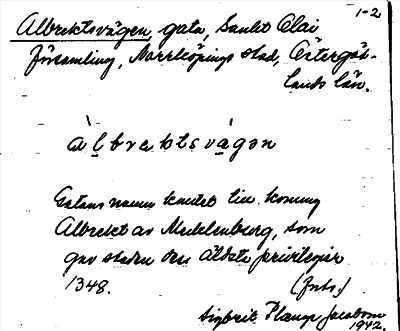 1-2
Albrektsvägen, gata, Sankt Olai
församling, Norrköpings stad, Östergöt-
lands län.
àlbraktsvàgən
Gatans namn knutet till konung
Albrekt av Mecklenburg, som
gav staden dess äldsta privilegier
1348. (Juls.)
Ingbrit Plange Jacobson
1942.